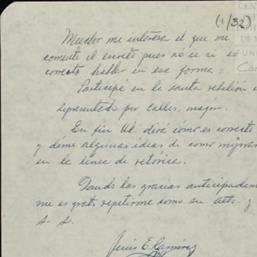 (1/32)
Mucho me interesa el que me
comente el escrito pues no se si es
correcto hablar en esa forma:
Participe en la santa rebelión
representado por calles, mejor
En fin Ud. dirá cómo es correcto
y déme algunas ideas de como
en la línea de retórica.
Dando las gracias
me es grato repetirme como su atto. y
s. s.
Jesús E. Ramírez